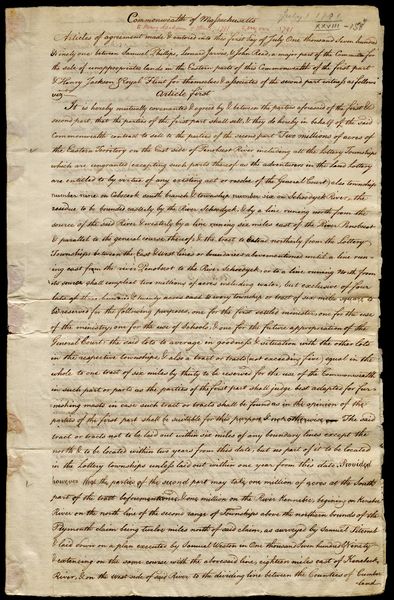 Commonwealth of Massachusetts
July 1 1791
XXVIII — 158
Articles of agreement made & entered into this first day of July One thousand seven hundred
& ninety one between Samuel Phillips, Leonard Jarvis, & John Read, a major part of the Committee for
the sale of unappropriated lands in the Eastern parts of this Commonwealth of the first part
& Henry Jackson & Royal Flint for themselves & associates of the second part witness as follows
viz
Article first
It is hereby mutually covenanted & agreed by & between the parties aforesaid of the first &
second part, that the parties of the first part shall sell & they do hereby on behalf of the said
Commonwealth contract to sell to the parties of the second part Two millions of acres of
the Eastern Territory on the East side of Penobscot River including all the Lottery Townships
which are ungranted (excepting such parts thereof as the adventurers in the Land Lottery
are entitled to by virtue of any existing act or resolve of the General Court) also township
number nine on Cobscook south branch & township number six on Schoodyck River, the
residue to be bounded easterly by the River Schoodyck & by a line running north from the
source of the said River & westerly by a line running six miles east of the River Penobscot
& parallel to the general course thereof & the tract to extend northerly from the Lottery
Townships between the East & West lines or boundaries abovementioned until a line run-
ning east from the river Penobscot to the River Schoodyck or to a line running North from
its source shall compleat two millions of acres including water, but exclusive of four
lots of three hundred & twenty acres each in every township or tract of six miles square to
be reserved for the following purposes, one for the first settled minister, one for the use
of the ministry, one for the use of Schools, & one for the future appropriation of the
General Court; the said lots to average in goodness & situation with the other lots
in the respective townships & also a tract or tracts (not exceeding five) equal in the
whole to one tract of six miles by thirty to be reserved for the use of the Commonwealth
in such part or parts as the parties of the first part shall judge best adapted for fur-
nishing masts in case such tract or tracts shall be found as in the opinion of the
parties of the first part shall be suitable for this purpose & not otherwise The said
tract or tracts not to be laid out within six miles of any boundary lines except the
north & to be located within two years from this date, but no part of it to be located
in the Lottery townships unless laid out within one year from this date. Provided
however that the parties of the second part may take one million of acres at the South
part of the tract beforementioned & one million on the River Kennebec, begining on Kenebec
River on the north line of the second range of Townships above the northern bounds of the
Plymouth claim being twelve miles north of said claim, as surveyed by Samuel Titcomb
& laid down on a plan executed by Samuel Weston in One thousand seven hundred & Ninety
& extending on the same course with the abovesaid line, eighteen miles east of Kenebeck
River, & on the west side of said River to the dividing line between the Counties of Cumber
land